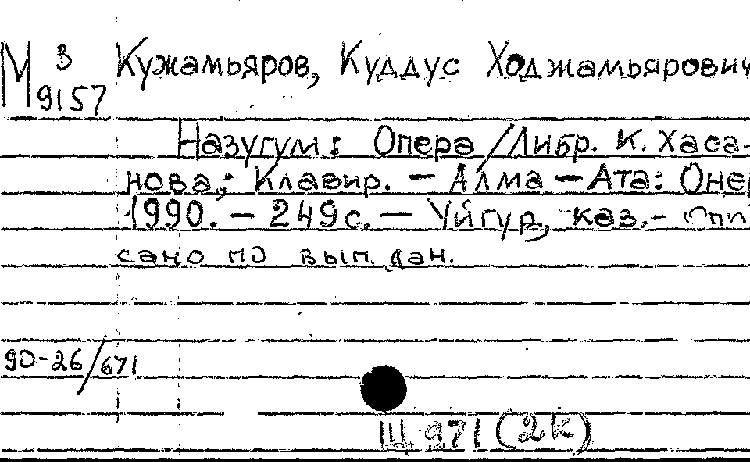 М 3 Кужамьяров, Куддус Ходжамьярович
9157
Назугум: Опера/Либр. К. Хаса-
нова; Клавир. — Алма-Ата: Онер
1990. — 249с. — Уйгур, каз. - Опи
сано по вып. дан.
90-26/671
Щ 971 (2К)